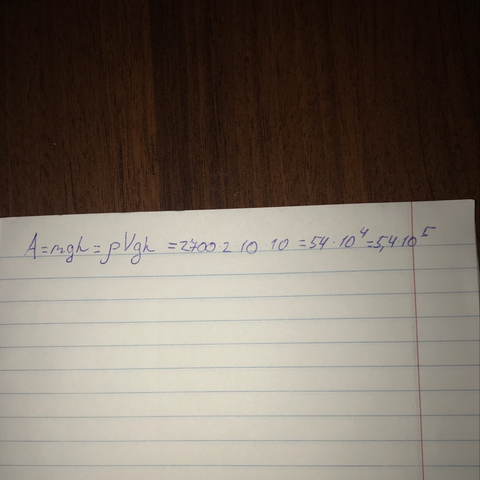 A=mgh=ρVgh =2700·2 10 10 =54·10⁴=5,4·10⁵